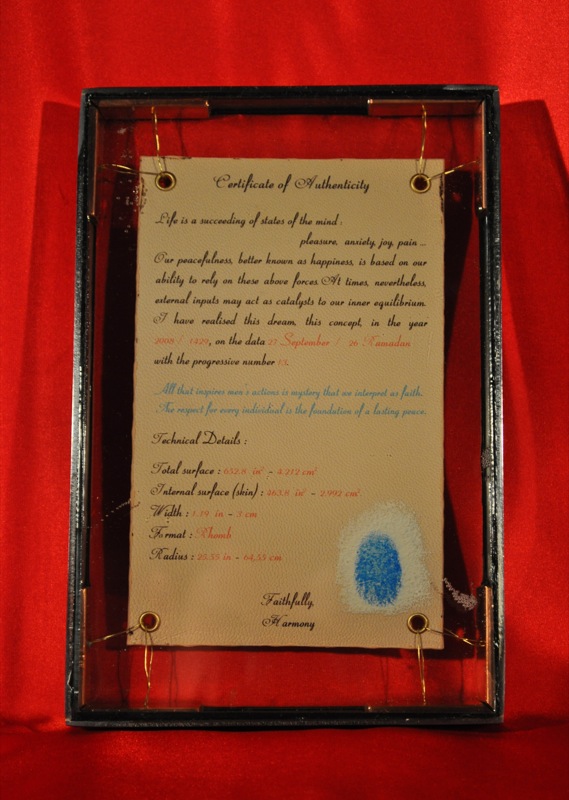 Certificate of Authenticity
Life is a succeeding of states of the mind :
pleasure, anxiety, joy, pain ...
Our peacefulness, better known as happiness, is based on our
ability to rely on these above forces. At times, nevertheless,
external inputs may act as catalysts to our inner equilibrium.
I have realised this dream, this concept, in the year
2008 / 1429, on the data 27 September / 26 Ramadan
with the progressive number 13.
All that inspires men's actions is mystery that we interpret as faith.
The respect for every individual is the foundation of a lasting peace.
Technical Details :
Total surface : 652.8 in² - 4.212 cm²
Internal surface (skin) : 463.8 in² - 2.992 cm²
Width : 1.19 in - 3 cm
Format : Rhomb
Radius : 25.55 in - 64,55 cm
Faithfully,
Harmony